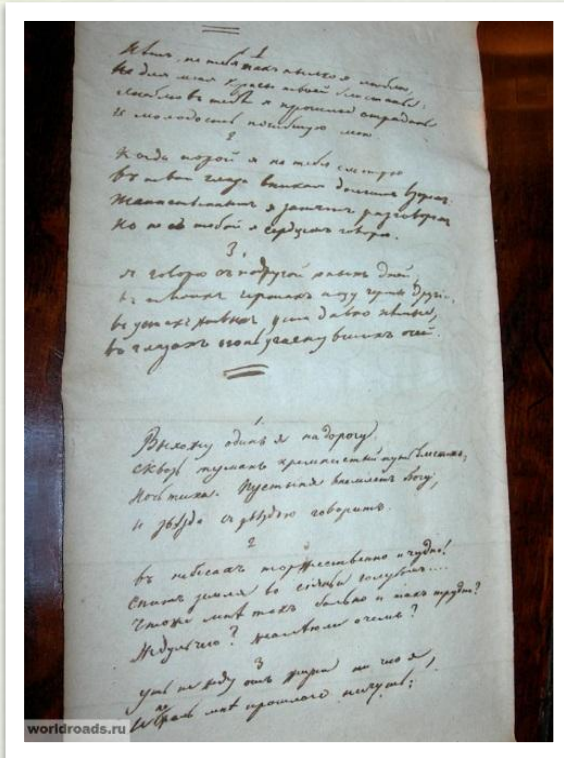 1
Нѣтъ, не тебя такъ пылко я люблю,
Не для меня красы твоей блистанье;
Люблю въ тебѣ я прошлое страданье
И молодость погибшую мою
2
Когда порой я на тебя смотрю
Въ твои глаза вникая долгимъ взоромъ
Таинственнымъ я занятъ разговоромъ
Но не съ тобой я сердцемъ говорю.
3.
Я говорю съ подругой юныхъ дней
Въ твоихъ чертахъ ищу черты другія,
Въ устахъ живыхъ уста давно нѣмыя,
Въ глазахъ огонь угаснувшихъ очей.
1.
Выхожу одинъ я на дорогу
Сквозь туманъ кремнистый путь блеститъ;
Ночь тиха. Пустыня внемлетъ Богу;
И звѣзда съ звѣздою говоритъ.
2
Въ небесахъ торжественно и чудно!
Спитъ земля во сіяньи голубомъ....
Что же мнѣ такъ больно и такъ трудно?
Жду ль чего? жалѣю ли о чемъ?
3
Ужъ не жду отъ жизни ничего я,
И не жаль мнѣ прошлаго ничуть;
worldroads.ru